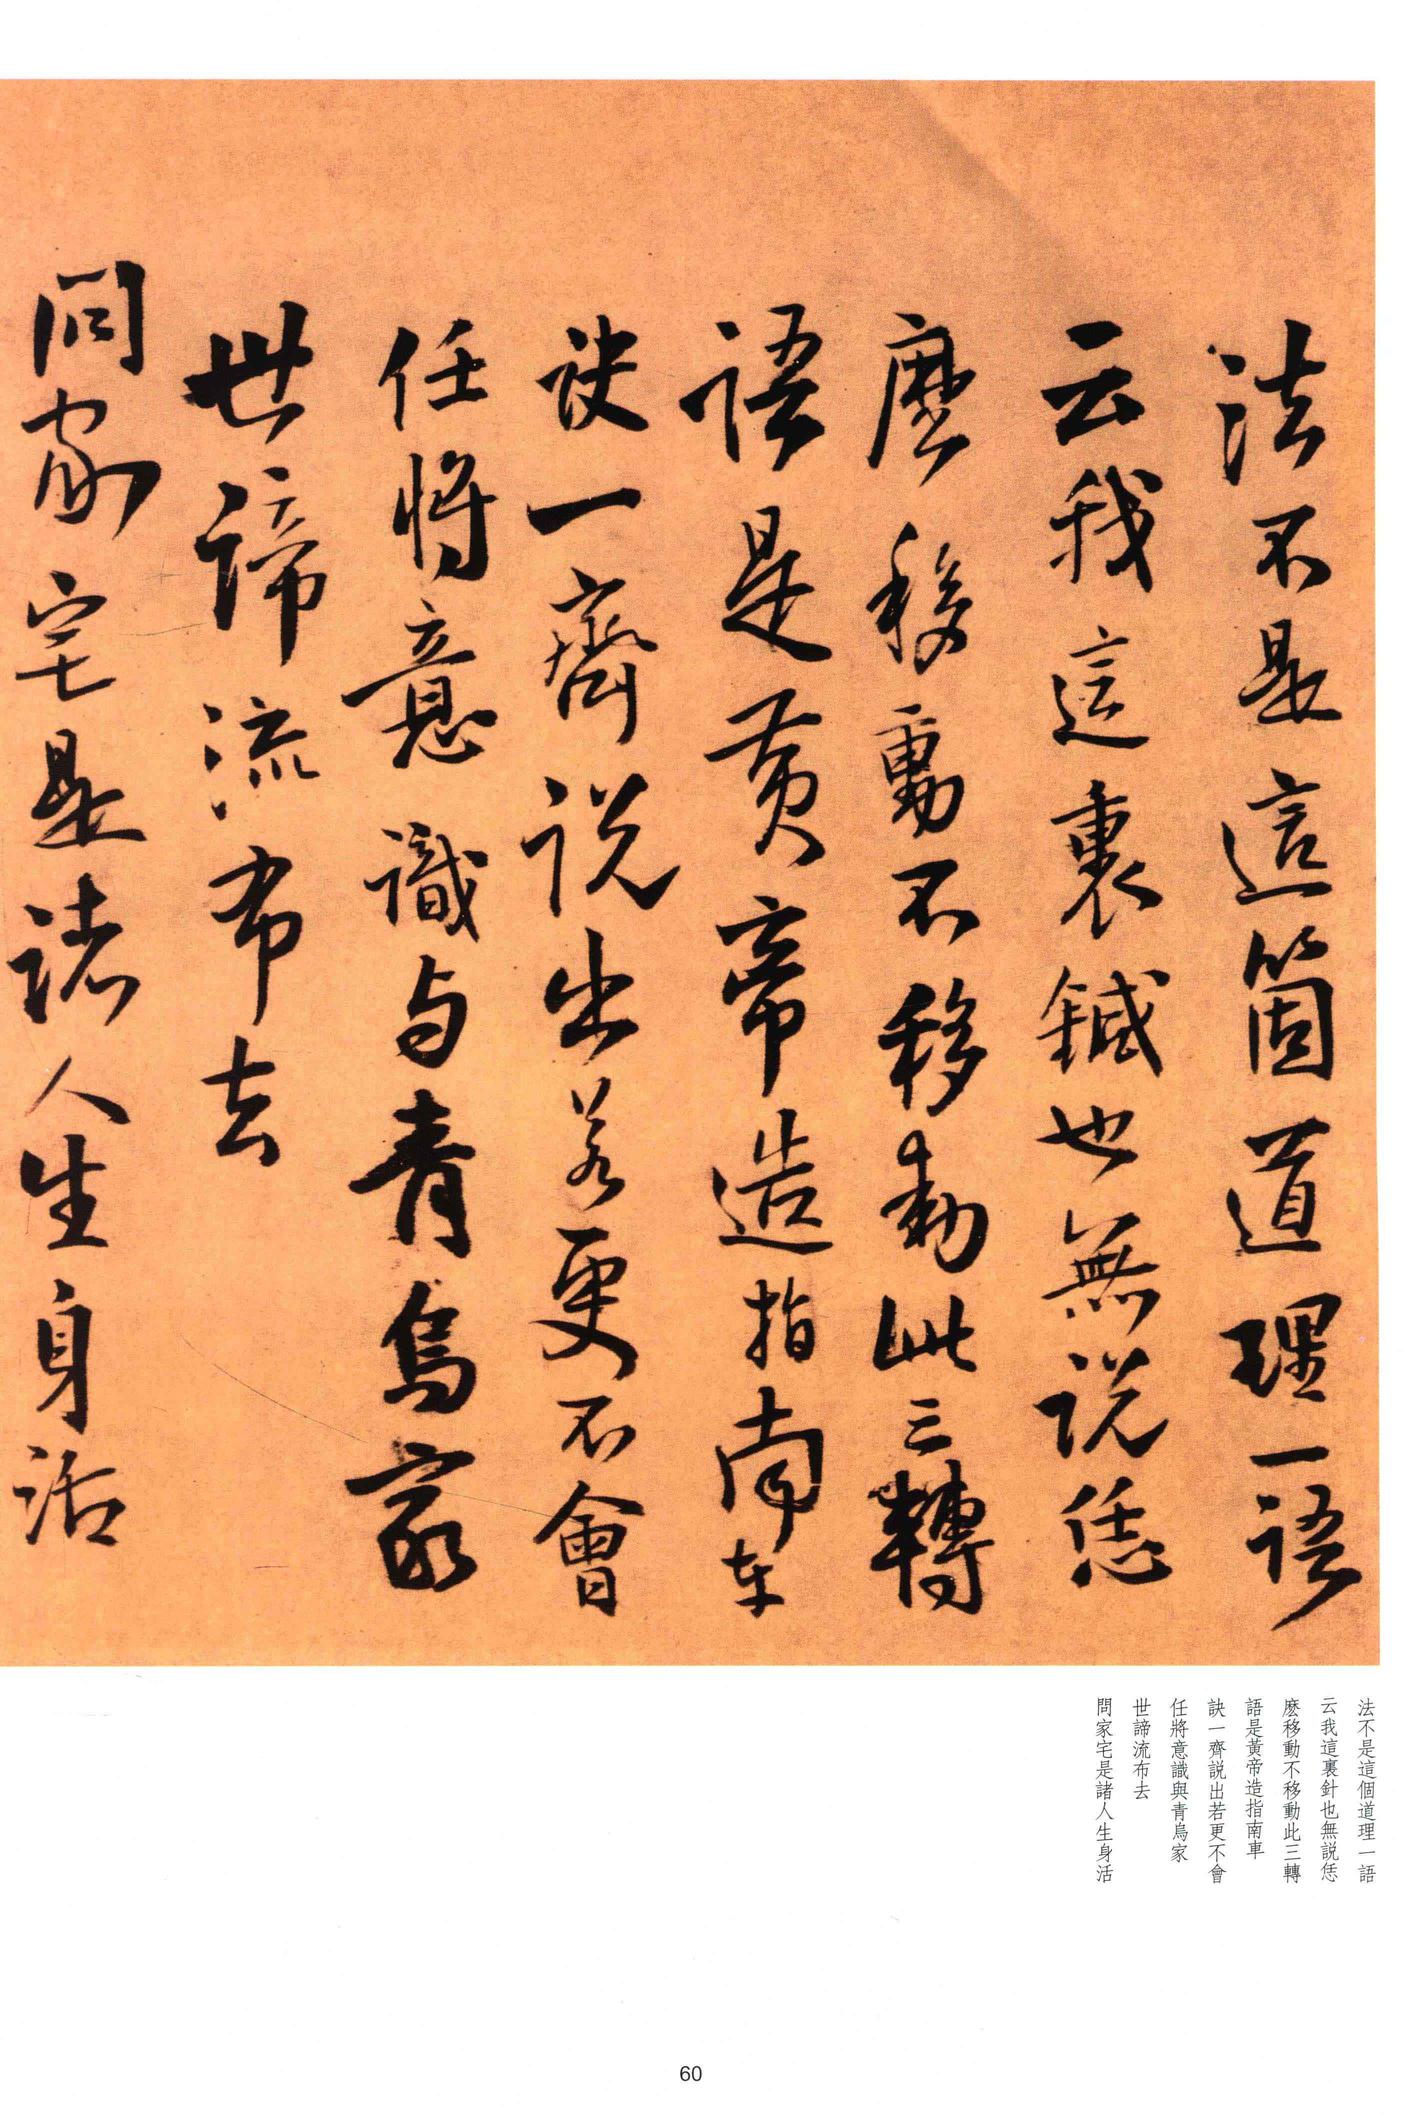 法不是這箇道理一語
云我這裏鍼也無說恁
麽移動不移動此三轉
語是黃帝造指南車
訣一齊説出若更不會
任將意識与青烏家
世諦流布去
問家宅是諸人生身活
法不是這個道理一語
云我這裏針也無説恁
麽移動不移動此三轉
語是黃帝造指南車
訣一齊説出若更不會
任將意識與青烏家
世諦流布去
問家宅是諸人生身活
60